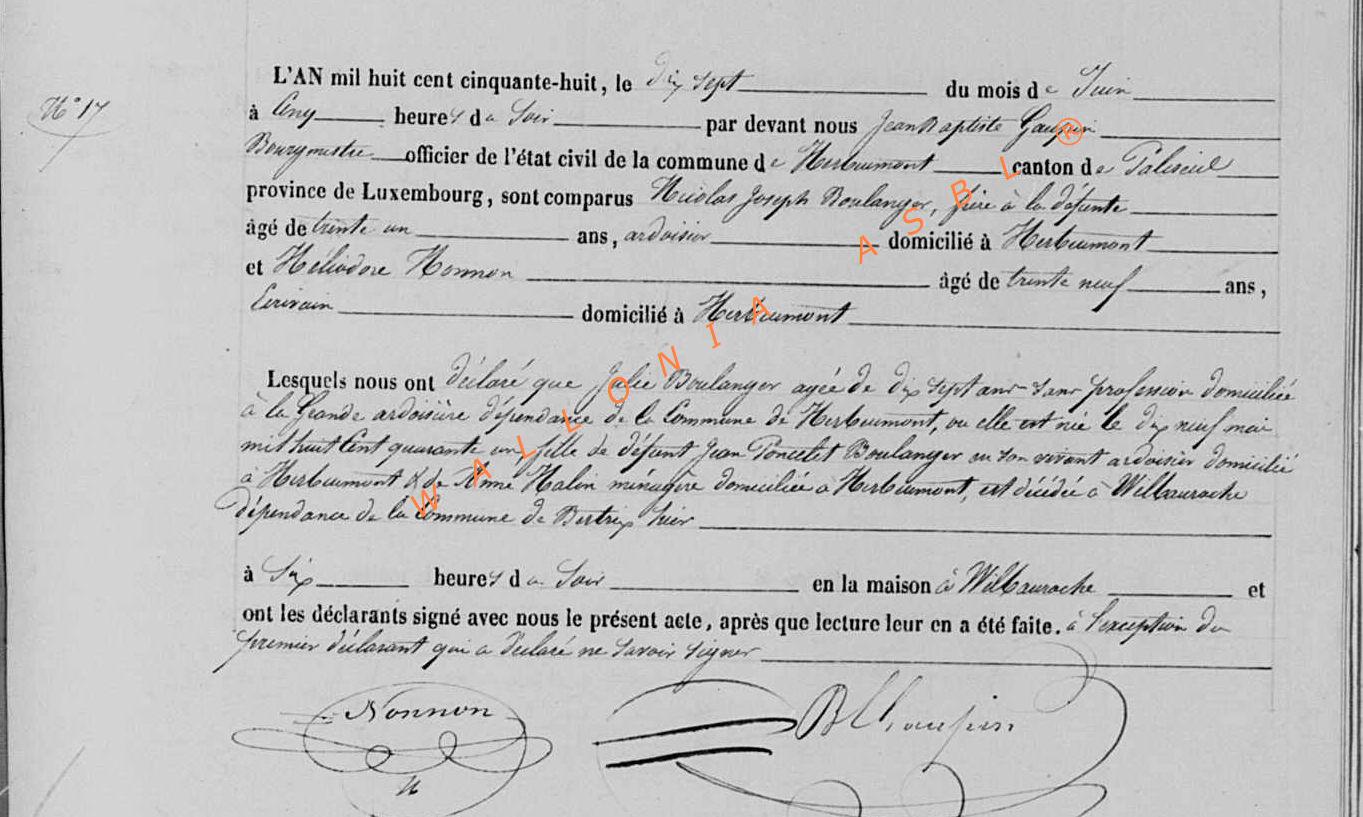 N° 17
L'AN mil huit cent cinquante-huit, le dix sept du mois de Juin
à Cinq heures du Soir par devant nous Jean Baptiste
Bourgmestre officier de l'état civil de la commune de Herbeumont canton de Paliseul
province de Luxembourg, sont comparus Nicolas Joseph Boulanger, frère à la défunte
âgé de trente un ans, ardoisier domicilié à Herbeumont
et Héliodore Nonnon âgé de trente neuf ans,
Ecrivain domicilié à Herbeumont
Lesquels nous ont déclaré que Julie Boulanger agée de dix sept ans sans profession domiciliée
à la Grande ardoisière dépendance de la Commune de Herbeumont, ou elle est née le dix neuf mai
mil huit Cent quarante un, fille de défunt Jean Poncelet Boulanger en son vivant ardoisier domicilié
à Herbeumont & de Halin ménagère domiciliée à Herbeumont, est décédée à Wilbauroche
dépendance de la Commune de Bertrix hier
à Six heures du Soir en la maison à Wilbauroche et
ont les déclarants signé avec nous le présent acte, après que lecture leur en a été faite. à l'exception du
premier déclarant qui a déclaré ne Savoir Signer
Nonnon
WALLONIA ASBL ®